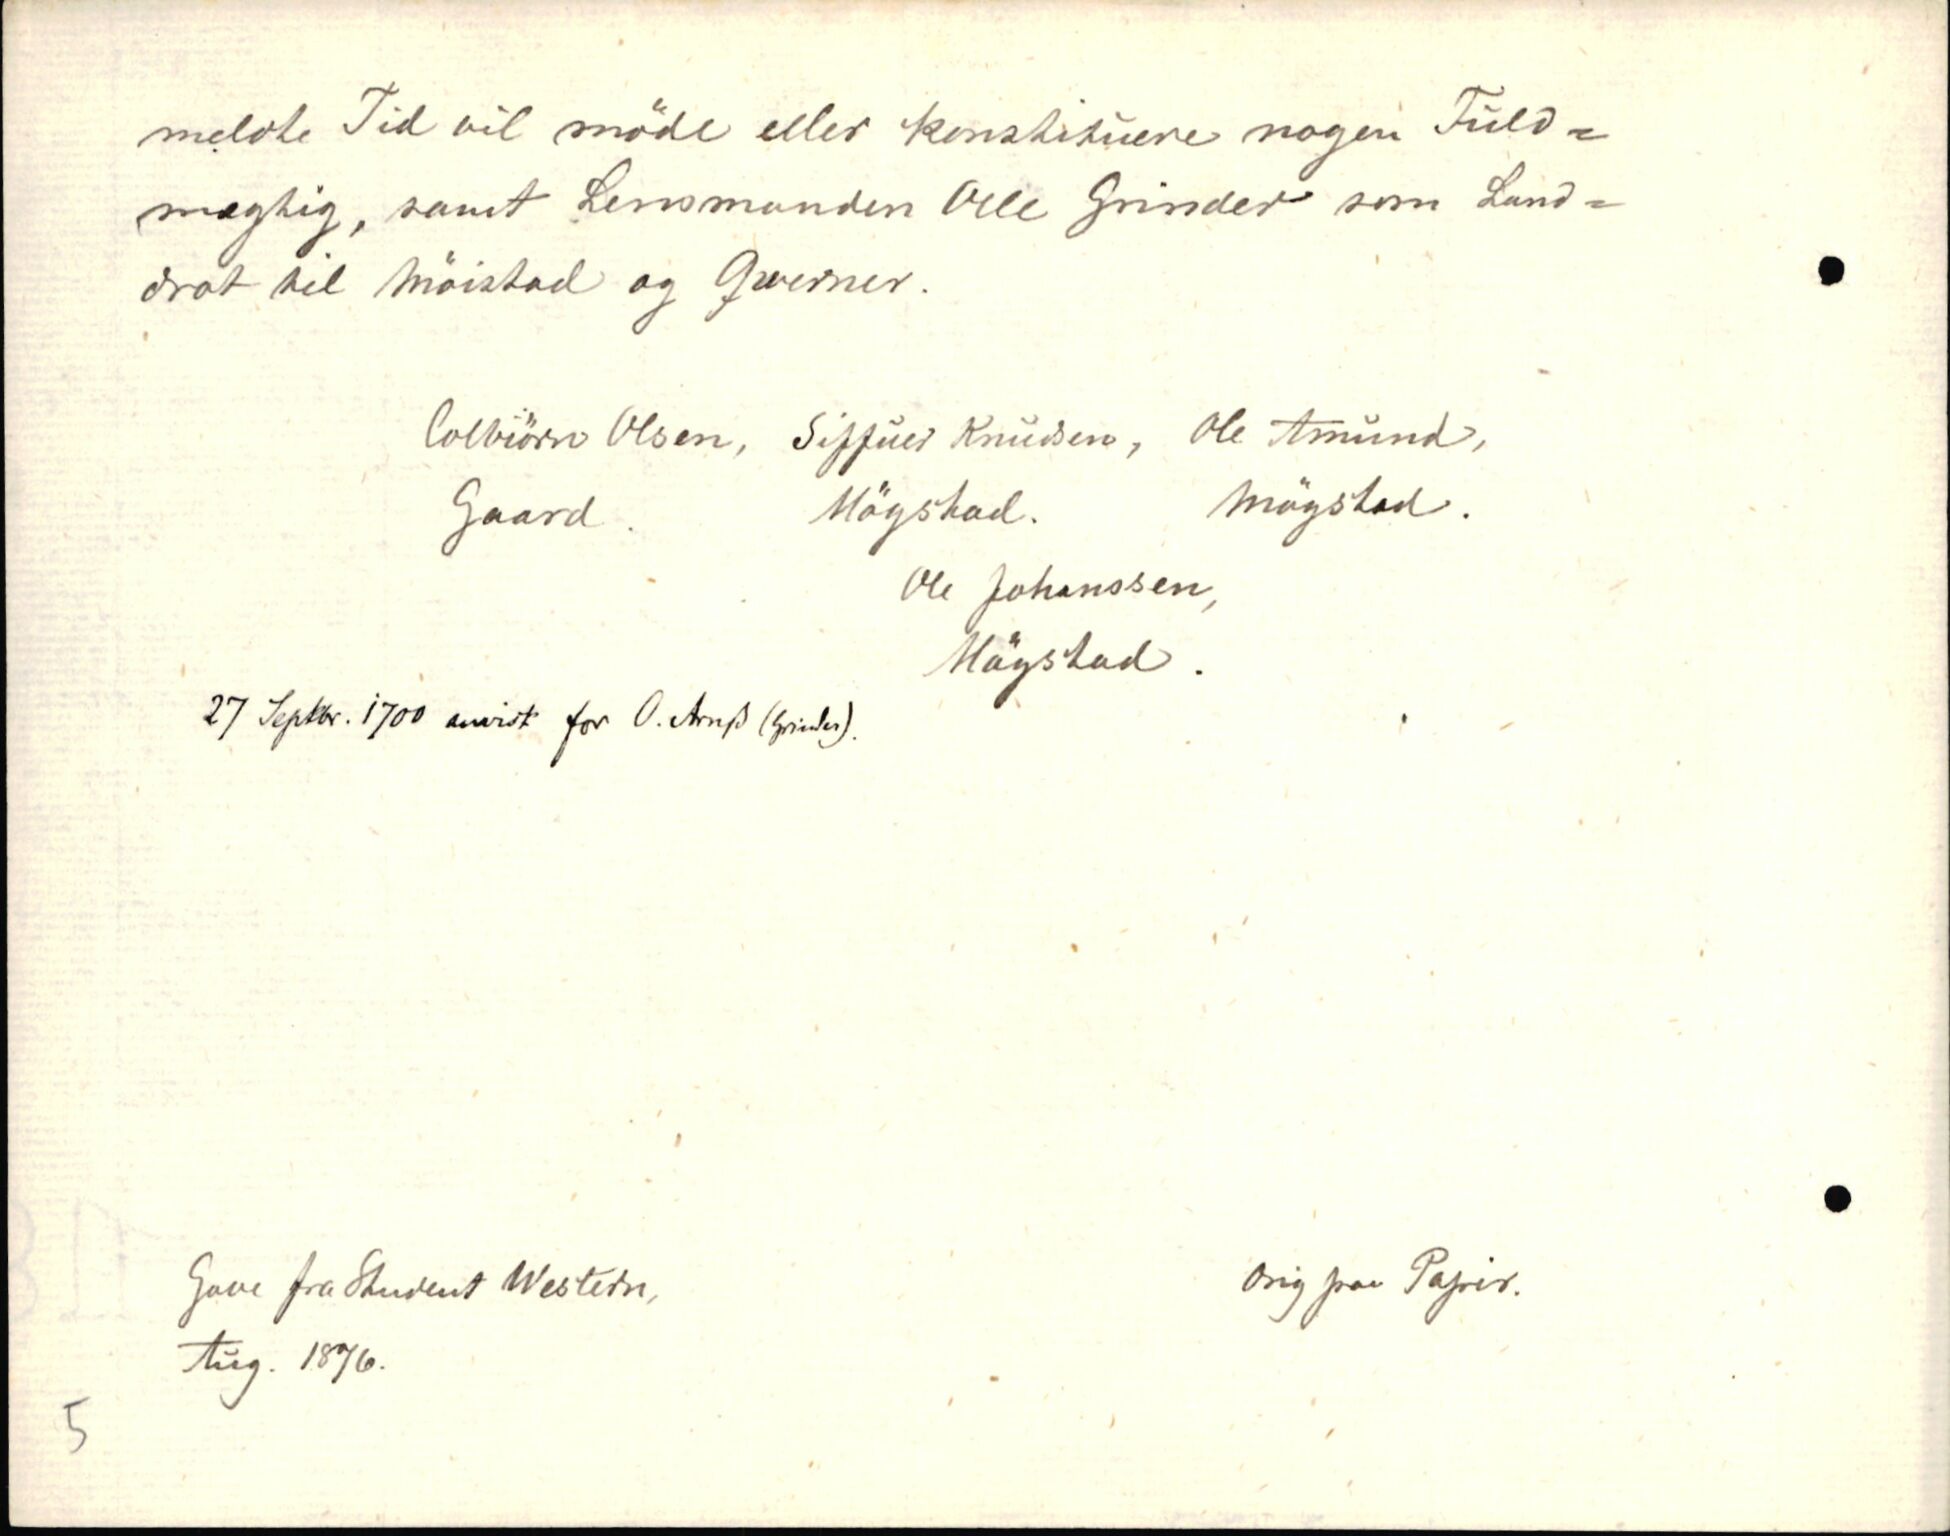 meldte Tid vil möde eller konstituere nogen Fuld=
mægtig, samt Lensmanden Olle Grinder som Land=
drot til Möistad og Qverner.
Colbiörn Olsen, Siffuer Knudsen, Ole Amund,
Gaard. Mögstad. Mögstad.
Ole Johanssen,
Mögstad.
27 Septbr. 1700 anvist for O. Arnß (Grinder).
Gave fra Student Western, Orig paa Papir.
Aug. 1876.
5